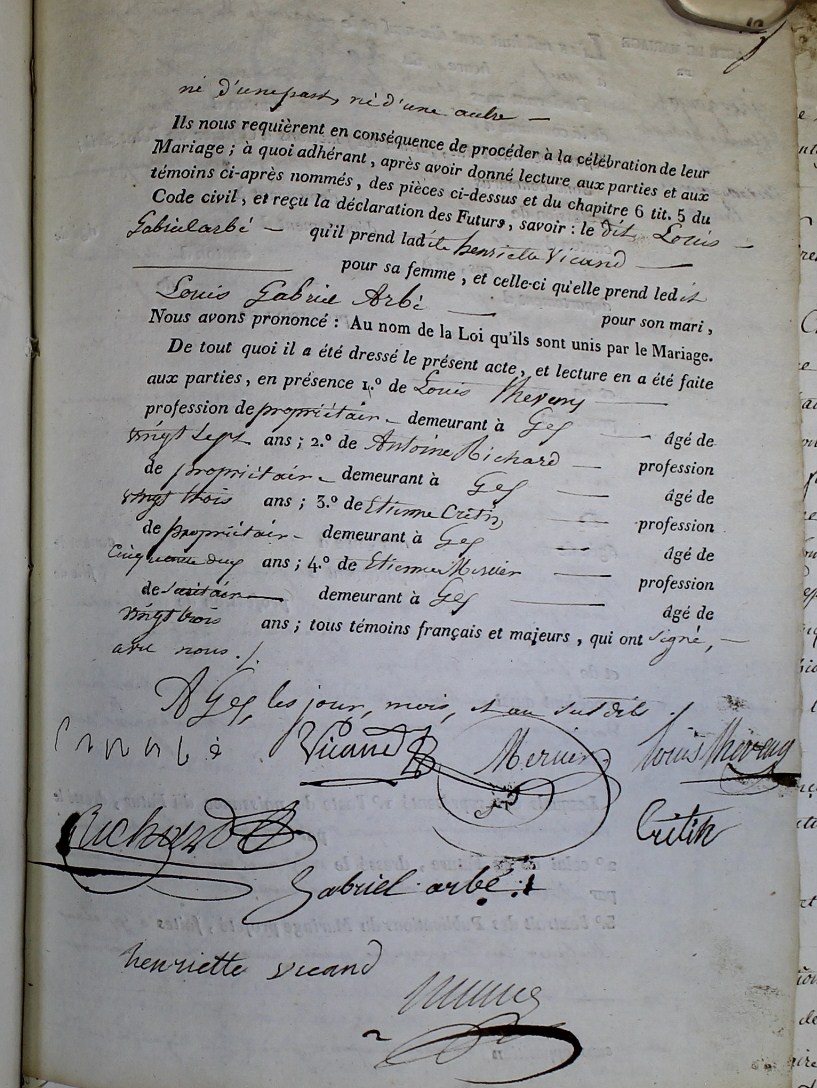 né d'une part, né d'une autre —
Ils nous requièrent en conséquence de procéder à la célébration de leur
Mariage ; à quoi adhérant, après avoir donné lecture aux parties et aux
témoins ci-après nommés, des pièces ci-dessus et du chapitre 6 tit. 5 du
Code civil, et reçu la déclaration des Futurs, savoir : le dit Louis —
Gabriel arbé — qu'il prend ladite henriette Vicand —
pour sa femme, et celle-ci qu'elle prend ledit
Louis Gabriel Arbé — pour son mari,
Nous avons prononcé : Au nom de la Loi qu'ils sont unis par le Mariage.
De tout quoi il a été dressé le présent acte, et lecture en a été faite
aux parties, en présence 1.° de Louis Theveny —
profession de propriétair — demeurant à Gex — âgé de
vingt sept ans ; 2.° de Antoine Richard — profession
de propriétair — demeurant à Gex — âgé de
vingt trois ans ; 3.° de Etienne Cretin — profession
de propriétair — demeurant à Gex — âgé de
cinquante deux ans ; 4.° de Etienne Mercier — profession
de — demeurant à Gex — âgé de
vingt trois ans ; tous témoins français et majeurs, qui ont signé, —
avec nous ./.
A Gex, les jour, mois, et an susdits ./
Vicand Mercier louis theveny
Richard Critin
Gabriel arbé
henriette vicand